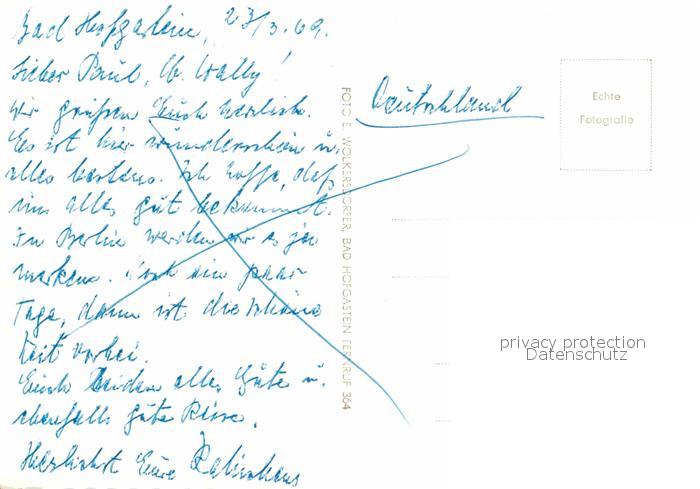 Bad Hofgastein, 23/3.69.
Lieber Paul, lb. Wally!
Wir grüßen Euch herzlich.
Es ist hier wunderschön u.
alles bestens. Ich hoffe, daß
uns alles gut bekommt.
In Berlin werden wir es ja
merken. Noch ein paar
Tage, dann ist die schöne
Zeit vorbei.
Euch beiden alles Gute u.
ebenfalls gute Reise.
Herzlichst Eure
Deutschland
Echte
Fotografie
FOTO E. WOLKERSDORFER, BAD HOFGASTEIN FERNRUF 364
privacy protection
Datenschutz